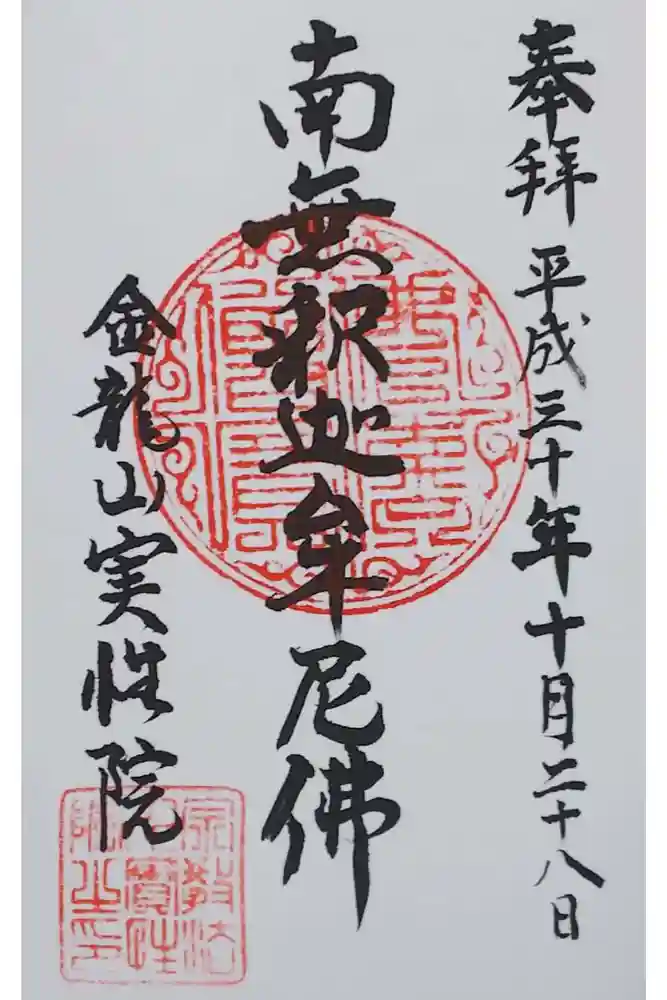 奉拜 平成三十年十月二十八日
南無釈迦牟尼佛
金龍山実性院